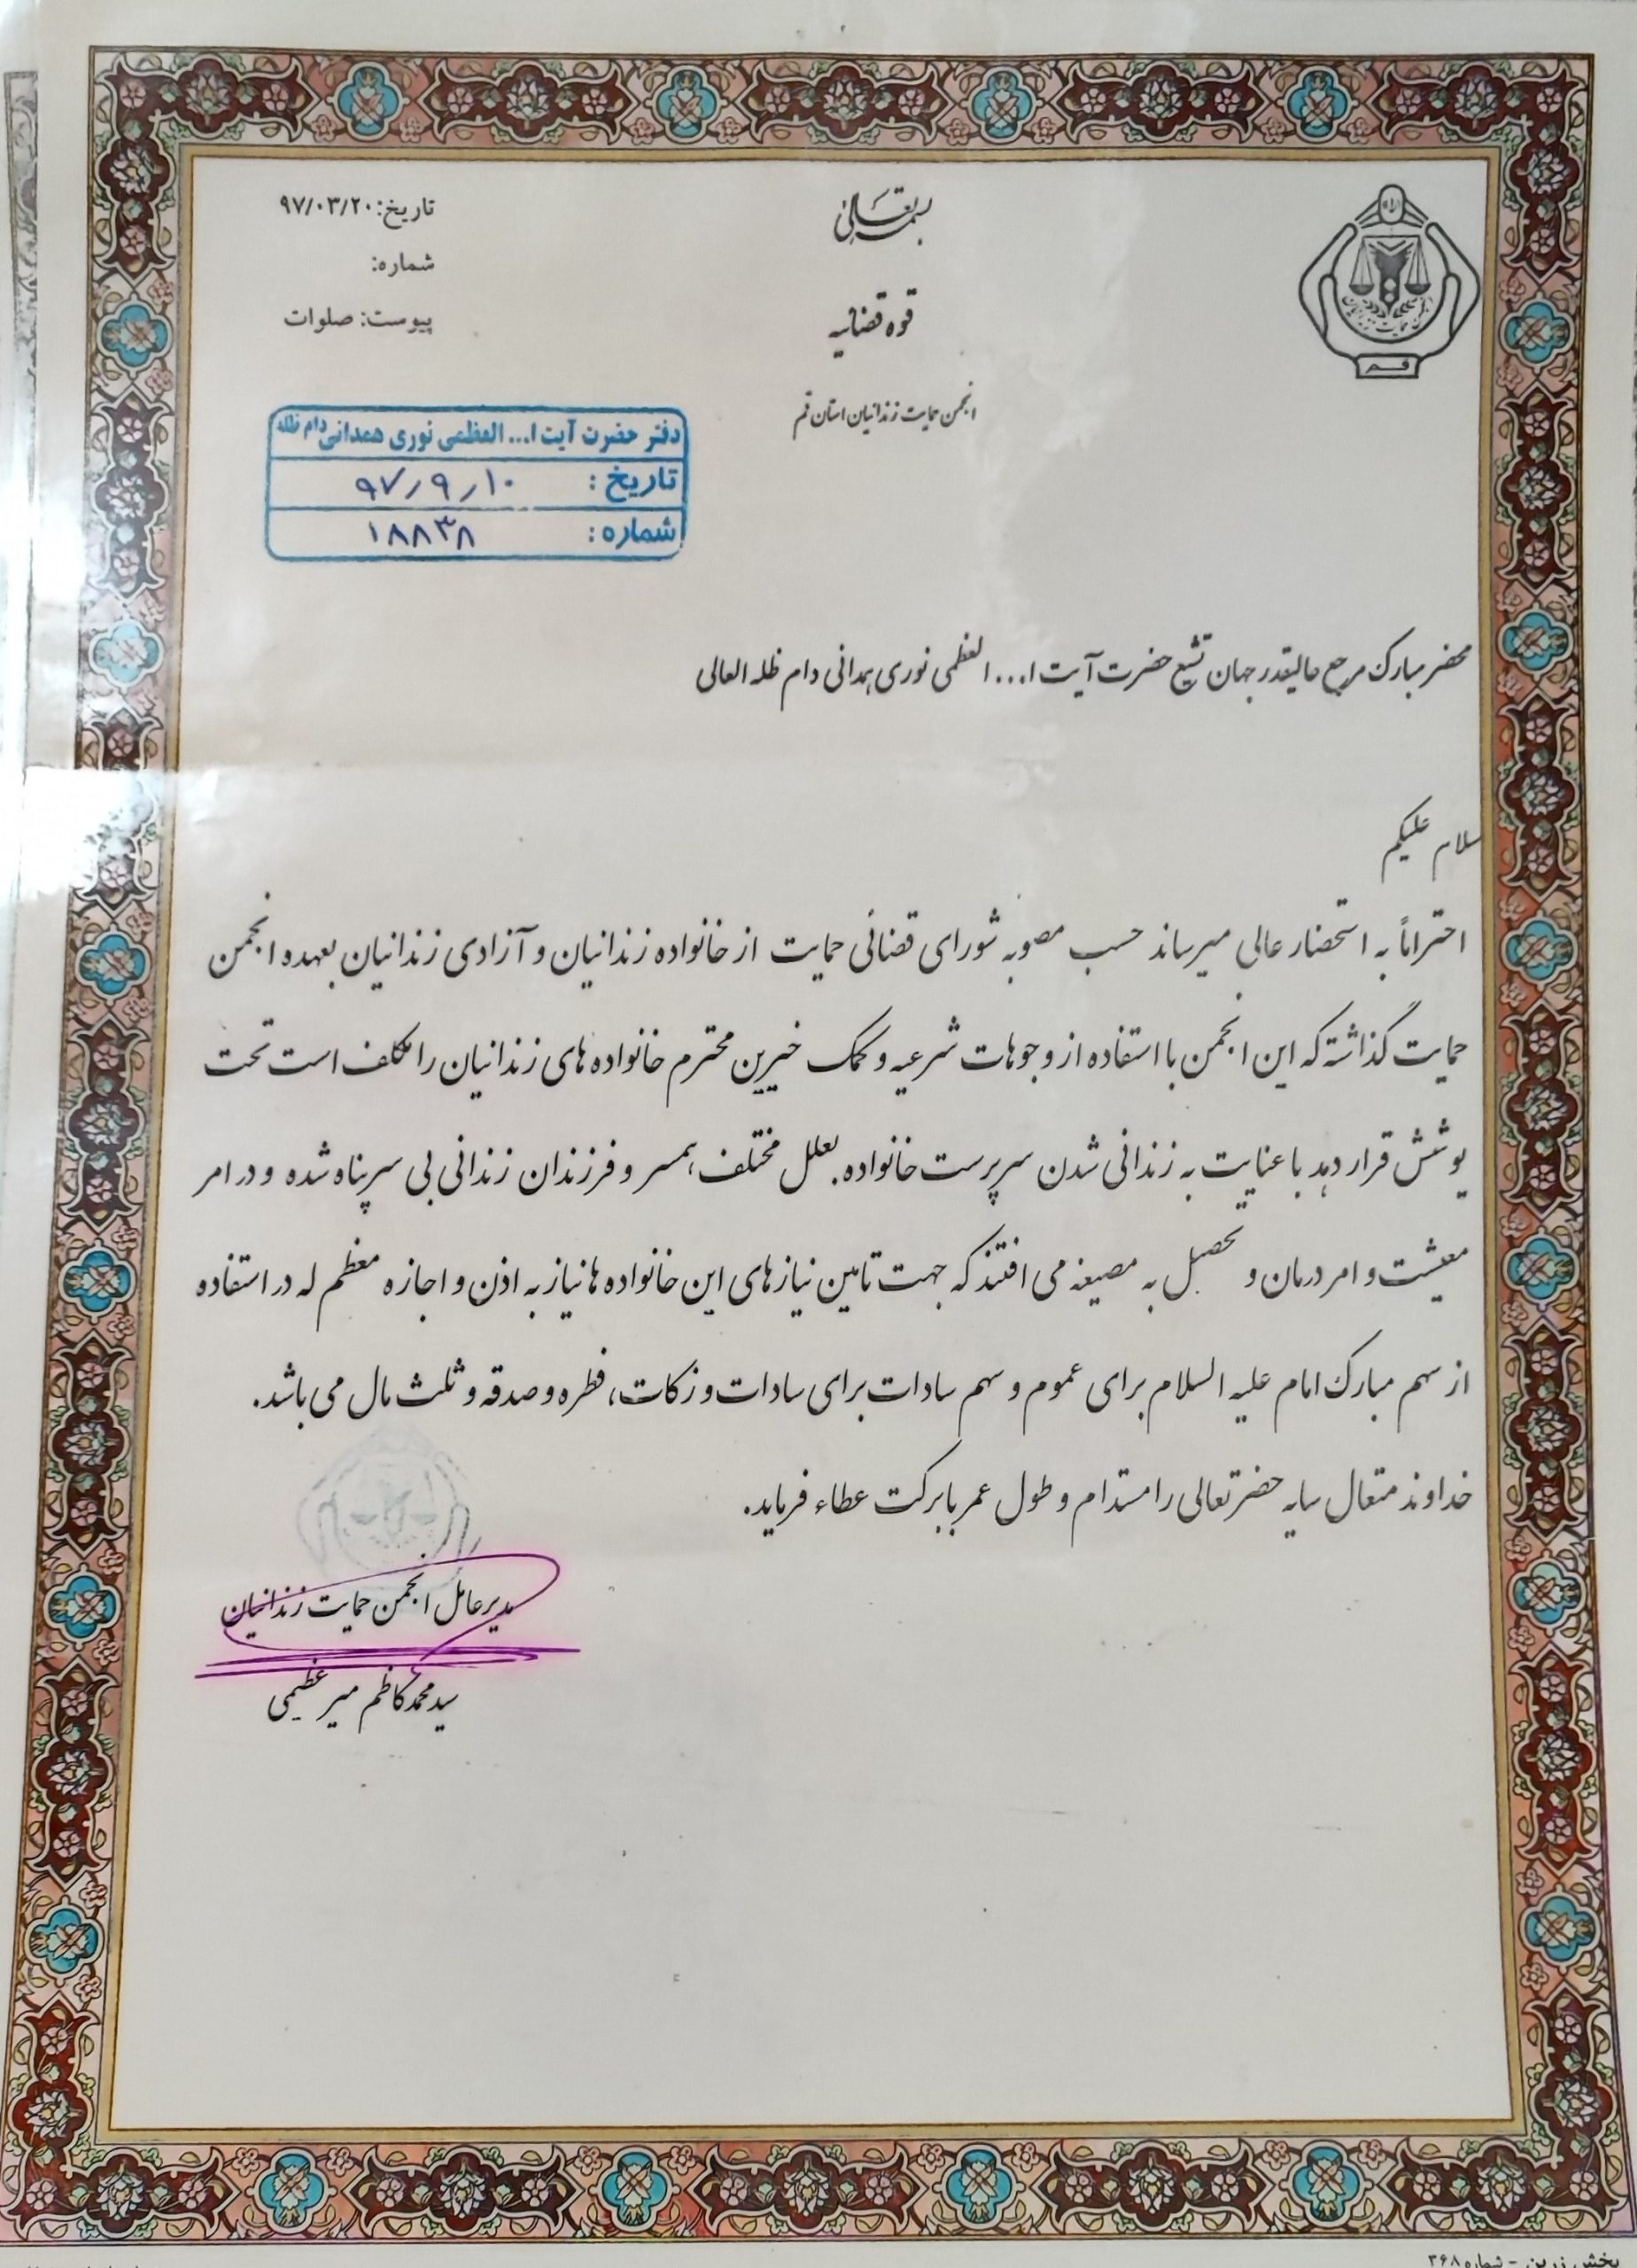 بسمه تعالی
قوه قضائیه
انجمن حمایت زندانیان استان قم
قم
تاریخ: ۹۷/۰۳/۲۰
شماره:
پیوست: صلوات
دفتر حضرت آیت ا... العظمی نوری همدانی دام ظله
تاریخ: ۹۷/۹/۱۰
شماره: ۱۸۸۳۸
محضر مبارک مرجع عالیقدر جهان تشیع حضرت آیت ا... العظمی نوری همدانی دام ظله العالی
سلام علیکم
احتراماً به استحضار عالی میرساند حسب مصوبه شورای قضائی حمایت از خانواده زندانیان و آزادی زندانیان بعهده انجمن
حمایت گذاشته که این انجمن با استفاده از وجوهات شرعیه و کمک خیرین محترم خانواده های زندانیان را مکلف است تحت
پوشش قرار دهد با عنایت به زندانی شدن سرپرست خانواده بعلل مختلف، همسر و فرزندان زندانی بی سرپناه شده و در امر
معیشت و امر درمان و تحصیل به مضیغه می افتند که جهت تامین نیازهای این خانواده ها نیاز به اذن و اجازه معظم له در استفاده
از سهم مبارک امام علیه السلام برای عموم و سهم سادات برای سادات و زکات، فطره و صدقه و ثلث مال می باشد.
خداوند متعال سایه حضرتعالی را مستدام و طول عمر با برکت عطاء فرماید.
مدیرعامل انجمن حمایت زندانیان
سید محمد کاظم میر عظیمی
پخش زرین - شماره ۳۶۸